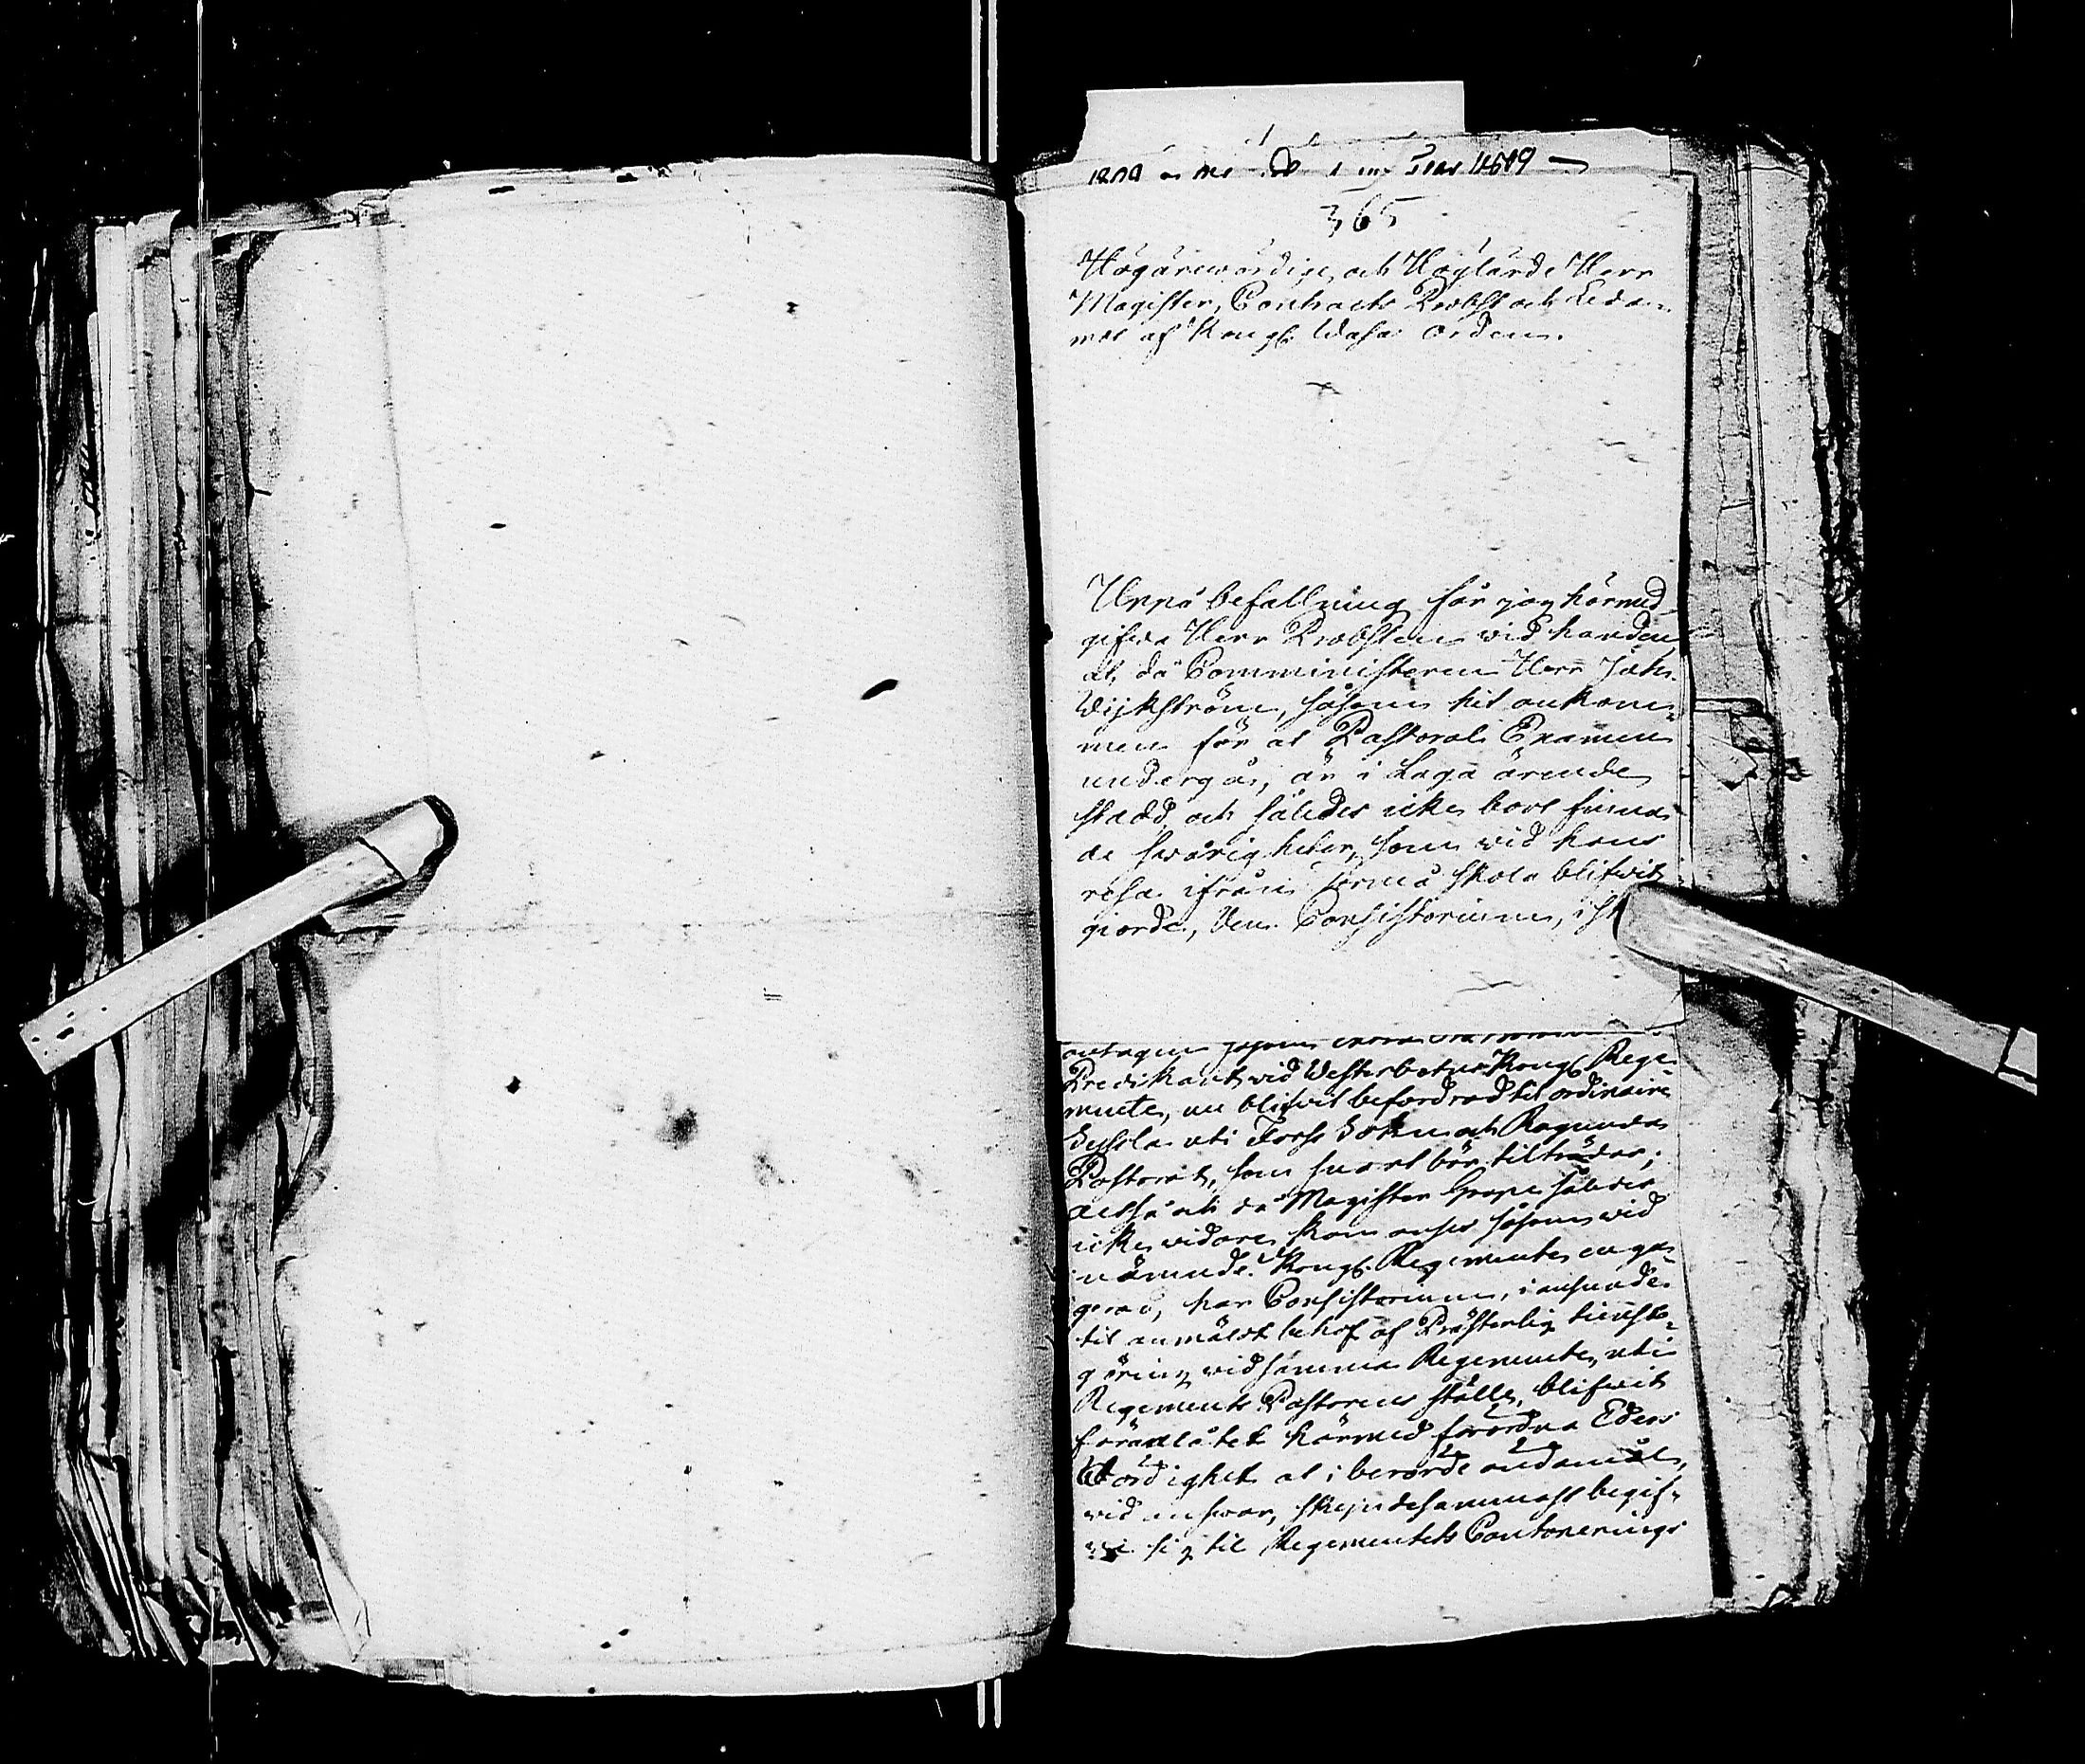 365
Högärewördige och Höglärde Herr
Magister, Contracts Probst och Leda-
mot af Kongl. Wasa Orden.
Uppå befallning får jag härmed
gifwa Herr Probsten vid handen
at, då Comministeren Herr Joh.
Wijkström, såsom hit ankom-
men för at Pastorals Examen
undergå, är i Laga ärende
stadd och således icke bort finna
de swårigheter, som wid hans
resa ifrån skola blifwit
giorde, Ven. Consistorium, i
antagen såsom
Predikant wid Westerbottns Kongl. Rege-
mente, nu blifwit befordrad til ordinaire
Syssla uti Forss Sokn och Ragunda
Pastorat, som snart bör tilträdas;
altså och då Magister Grape således
icke widare kan anses såsom wid
nämnde Kongl. Regemente enga-
gerad, har Consistorium, i anseende
til anmält behof af Prästerlig tienst-
göring wid samma Regemente, uti
Regements Pastorens ställe, blifwit
föranlåtet härmed förordna Eders
Wördighet at i berörde ändamål,
wid answar, skyndesammast begif-
wa sig til Regementets Cantonerings